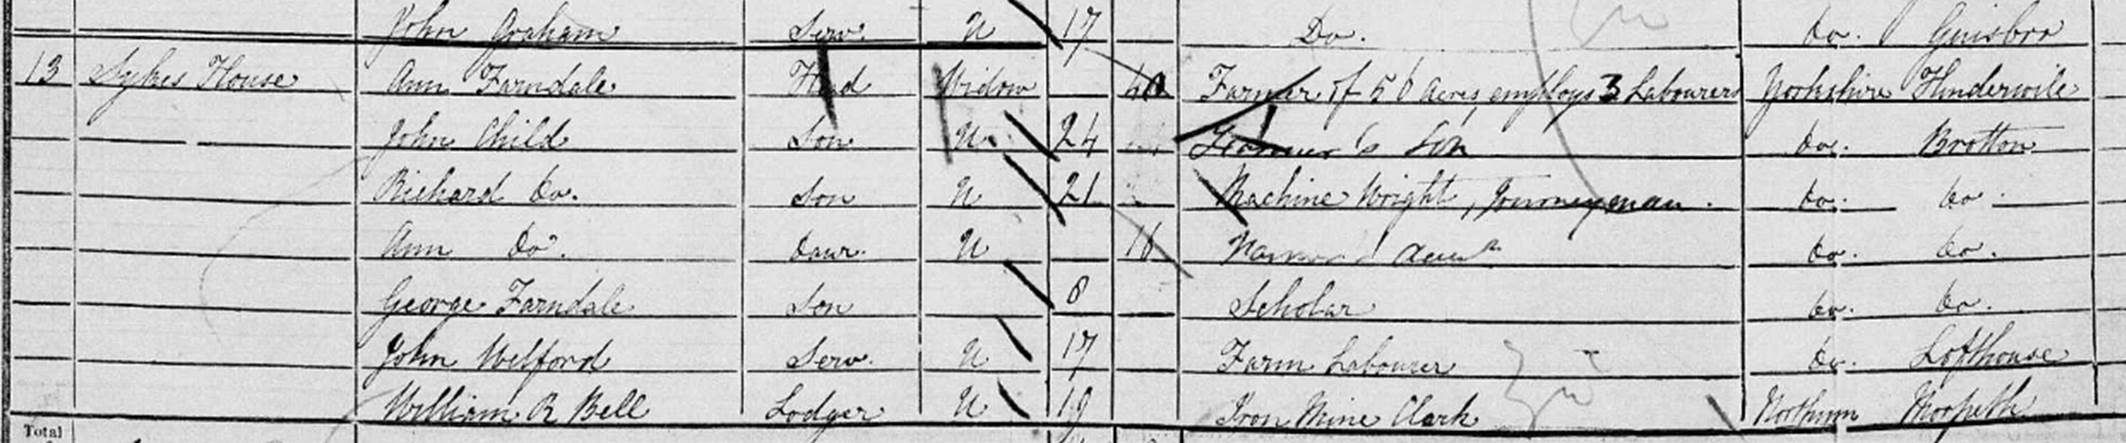 John Graham Serv. U 17 Do. do. Guisbro
13 Sykes House Ann Farndale Head Widow Farmer of 56 Acres employs 3 Labourers Yorkshire Hinderwile
John Child Son U. 24 Farmer's Son do. Brotton
Richard do. Son U 21 Machine Wright, Journeyman. do. do.
Ann Do. Daur. U 16 do. do.
George Farndale Son 8 Scholar do. do.
John Welford Serv. U 17 Farm Labourer do. Lofthouse
William R Bell Lodger U 19 Iron Mine Clark Northum Morpeth
Total